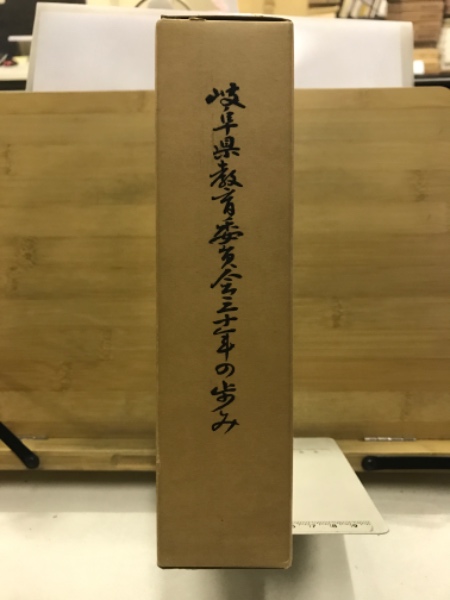 岐阜県教育委員会三十年の歩み